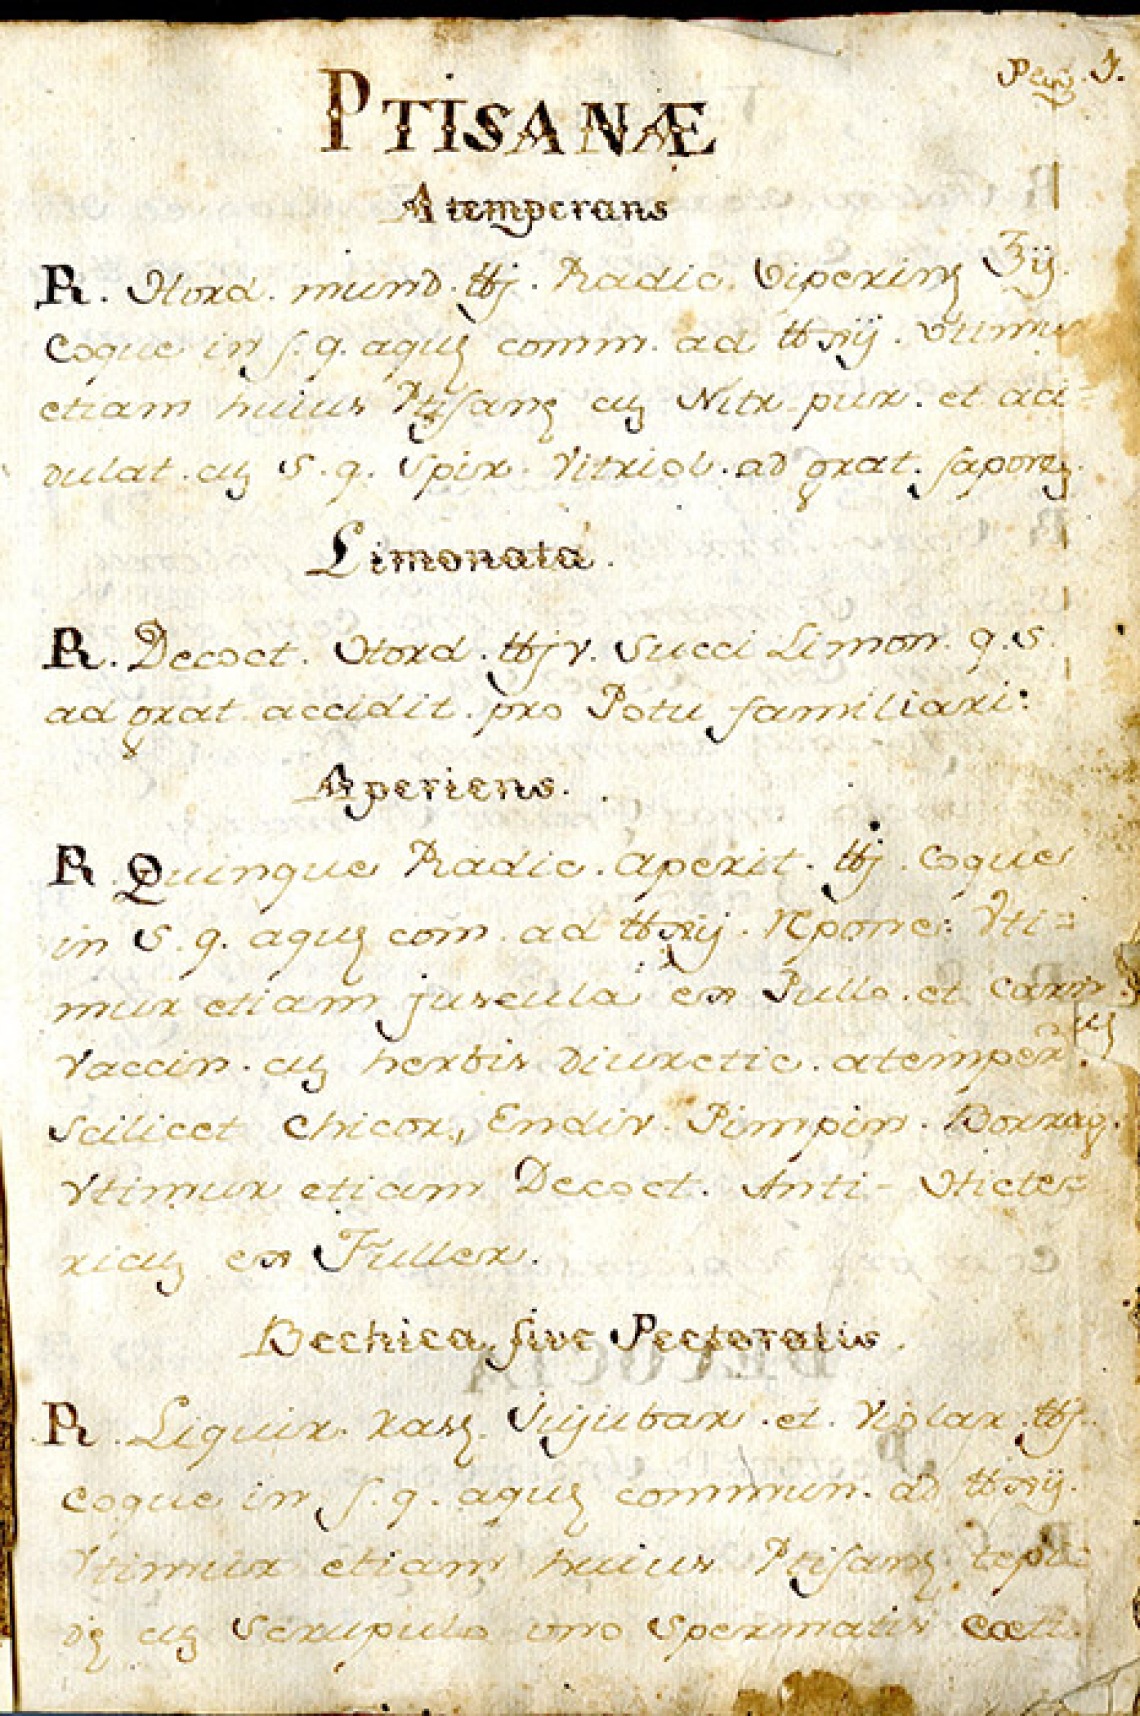 Pag. 1.
PTISANÆ
Atemperans
R. Hord. mund. ℔j. Radic. Viperinę ℥ij.
Coque in s. q. aquę comm. ad ℔xij. Utimur
etiam huius Ptisanę cuȝ Nitr. pur. et aci=
dulat. cuȝ s. q. Spir. Vitriol. ad grat. saporeȝ.
Limonata.
R. Decoct. Hord. ℔jv. Succi Limon. q. s.
ad grat. accidit. pro Potu familiari:
Aperiens.
R. Quinque Radic. aperit. ℔j. Coque
in s. q. aquę com. ad ℔xij. Vti=
mur etiam juscula ex Pullo. et carn
Vaccin. cuȝ herbis diuretic. atemper.
Scilicet Chicor., Endiv. Pimpin. Borrag.
Vtimur etiam Decoct. Anti- Hicte=
ricuȝ ex Fuller.
Bechica, sive Pectoralis.
R. Liquir. rasę. Jujubar. et Violar. ℔j.
Coque in s. q. aquę commun. ad ℔xij.
Vtimur etiam huius Ptisanę tepi=
dę cuȝ Scrupulo uno Spermatis Cæti.